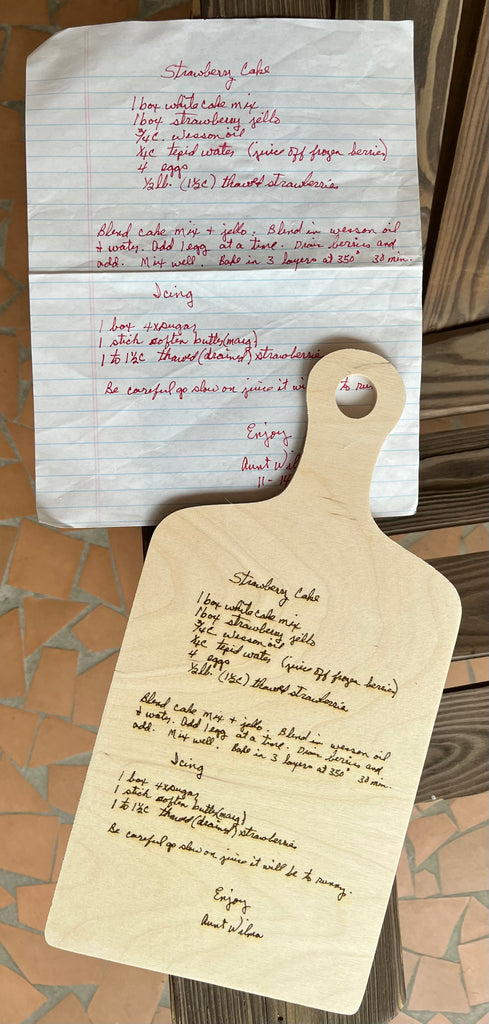 Strawberry Cake
1 box white cake mix
1 box strawberry jello
3/4 c. wesson oil
1/2c tepid water (juice off frozen berries)
4 eggs
1/2 lb. (1 1/2 c) thawed strawberries
Blend cake mix + jello. Blend in wesson oil
+ water. Add 1 egg at a time. Drain berries and
add. Mix well. Bake in 3 layers at 350° 30 min.
Icing
1 box 4x sugar
1 stick soften butter (marg)
1 to 1 1/2 c thawed (drained) strawberries
Be careful go slow on juice it wi to run
Enjoy
Aunt Wil
11-14
Strawberry Cake
1 box white cake mix
1 box strawberry jello
3/4 c wesson oil
1/2c tepid water (juice off frozen berries)
4 eggs
1/2 lb. (1 1/2 c) thawed strawberries
Blend cake mix + jello. Blend in wesson oil
+ water. Add 1 egg at a time. Drain berries and
add. Mix well. Bake in 3 layers at 350° 30 min.
Icing
1 box 4x sugar
1 stick soften butter (marg)
1 to 1 1/2 c thawed (drained) strawberries
Be careful go slow on juice it will be to runny.
Enjoy
Aunt Wilma